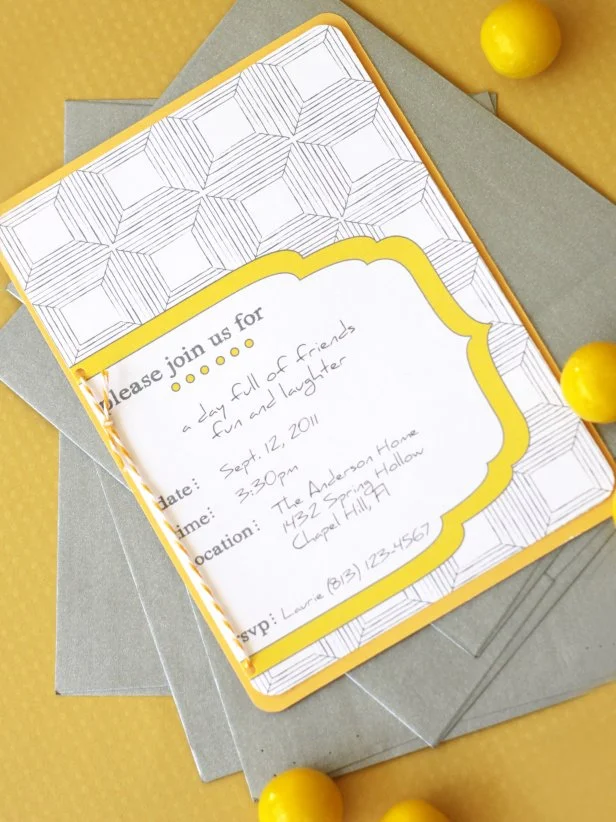 please join us for
a day full of friends
fun and laughter
date: Sept. 12, 2011
time: 3:30pm
location: The Anderson Home
1432 Spring Hollow
Chapel Hill, Fl
rsvp: Laurie (813) 123-4567